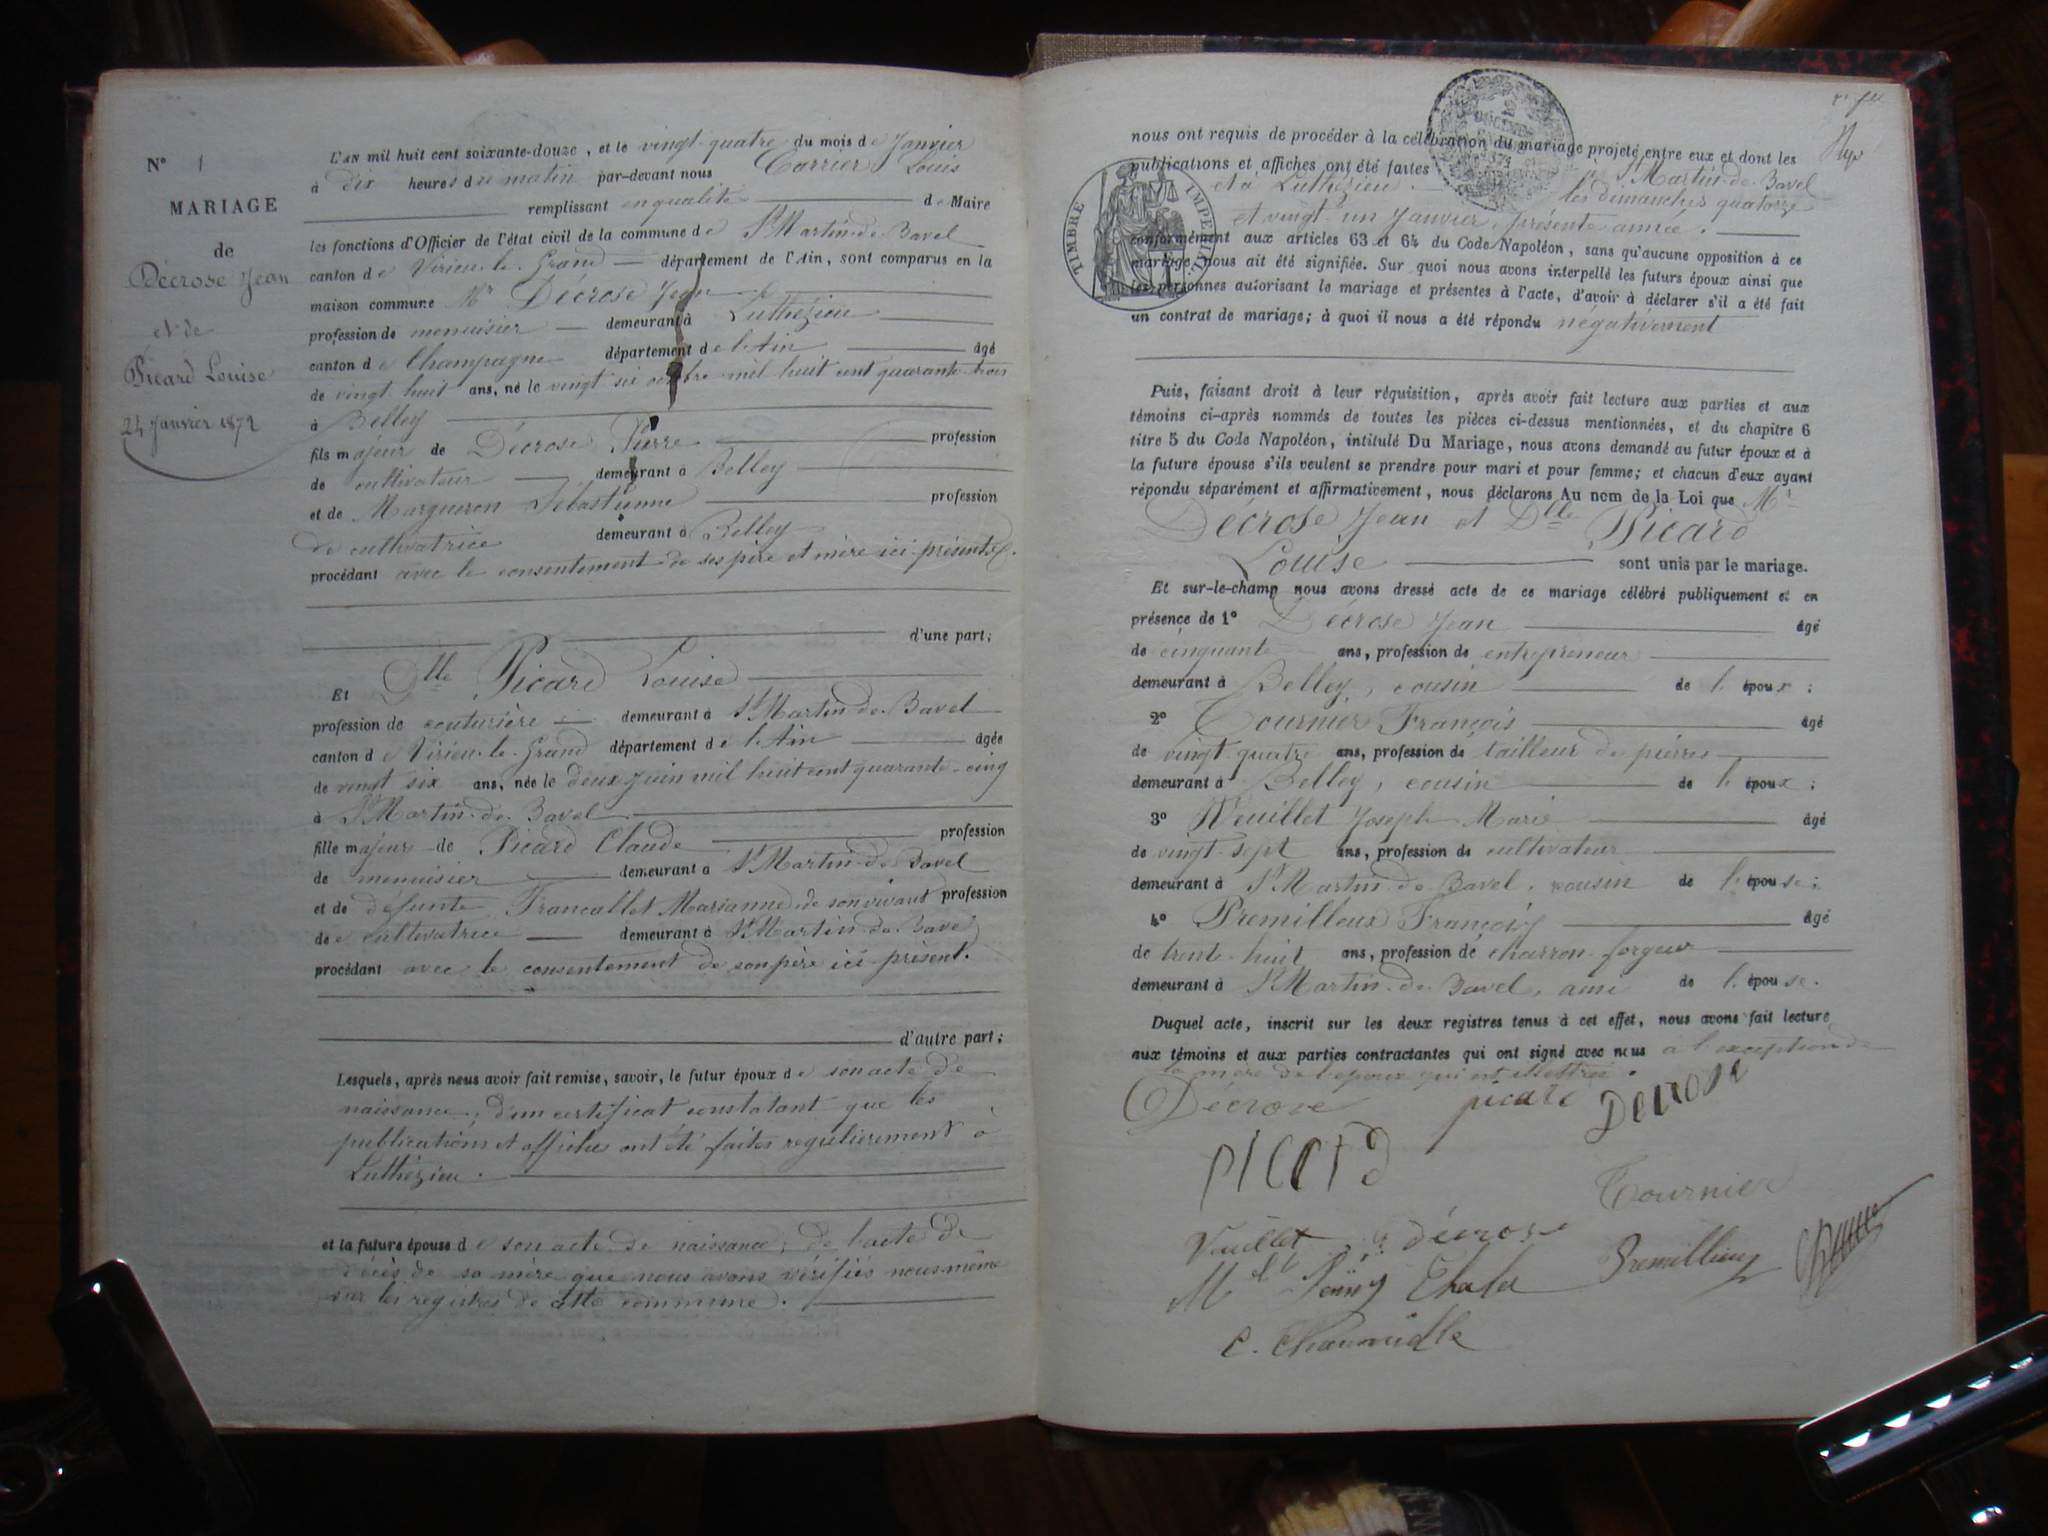 N° 1
MARIAGE
de
Décrose Jean
et de
Picard Louise
24 Janvier 1872
L'AN mil huit cent soixante-douze, et le vingt-quatre du mois de Janvier
à dix heures du matin par-devant nous Carrier Louis
remplissant en qualité de Maire
les fonctions d'Officier de l'état civil de la commune de St Martin-de-Bavel
canton de Virieu-le-Grand département de l'Ain, sont comparus en la
maison commune Mr Décrose Jean
profession de menuisier demeurant à Luthézieu
canton de Champagne département de l'Ain âgé
de vingt huit ans, né le vingt six mil huit cent quarante-trois
à Belley
fils majeur de Décrose Pierre profession
de cultivateur demeurant à Belley
et de Margueron Sébastienne profession
de cultivatrice demeurant à Belley
procédant avec le consentement de ses père et mère ici-présents.
d'une part;
Et Dlle Picard Louise
profession de couturière demeurant à St Martin-de-Bavel
canton de Virieu-le-Grand département de l'Ain âgée
de vingt six ans, née le deux juin mil huit cent quarante-cinq
à St Martin-de-Bavel
fille majeure de Picard Claude profession
de menuisier demeurant à St Martin-de-Bavel
et de défunte Francallet Marianne, de son vivant profession
de cultivatrice demeurant à St Martin-de-Bavel
procédant avec le consentement de son père ici-présent.
d'autre part;
Lesquels, après nous avoir fait remise, savoir, le futur époux de son acte de
naissance, d'un certificat constatant que les
publications et affiches ont été faites regulièrement à
Luthézieu.
et la future épouse de son acte de naissance, de l'acte de
décès de sa mère que nous avons vérifiés nous-même
sur les registres de cette commune.
nous ont requis de procéder à la célébration du mariage projeté entre eux et dont les
publications et affiches ont été faites à St Martin-de-Bavel
et à Luthézieu. les dimanches quatorze
et vingt un Janvier, présente année.
TIMBRE IMPÉRIAL
conformément aux articles 63 et 64 du Code Napoléon, sans qu'aucune opposition à ce
mariage nous ait été signifiée. Sur quoi nous avons interpellé les futurs époux ainsi que
les personnes autorisant le mariage et présentes à l'acte, d'avoir à déclarer s'il a été fait
un contrat de mariage; à quoi il nous a été répondu négativement
Puis, faisant droit à leur réquisition, après avoir fait lecture aux parties et aux
témoins ci-après nommés de toutes les pièces ci-dessus mentionnées, et du chapitre 6
titre 5 du Code Napoléon, intitulé Du Mariage, nous avons demandé au futur époux et à
la future épouse s'ils veulent se prendre pour mari et pour femme; et chacun d'eux ayant
répondu séparément et affirmativement, nous déclarons Au nom de la Loi que Mr
Décrose Jean et Dlle Picard
Louise sont unis par le mariage.
Et sur-le-champ nous avons dressé acte de ce mariage célébré publiquement et en
présence de 1° Décrose Jean âgé
de cinquante ans, profession de entrepreneur
demeurant à Belley, cousin de l'époux;
2° Tournier François âgé
de vingt quatre ans, profession de tailleur de pierres
demeurant à Belley, cousin de l'époux;
3° Veuillet Joseph Marie âgé
de vingt-sept ans, profession de cultivateur
demeurant à St Martin-de-Bavel, cousin de l'épouse;
4° Premillieux François âgé
de trente-huit ans, profession de charron-forgeur
demeurant à St Martin-de-Bavel, ami de l'épouse.
Duquel acte, inscrit sur les deux registres tenus à cet effet, nous avons fait lecture
aux témoins et aux parties contractantes qui ont signé avec nous à l'exception de
la mère de l'époux qui est illettrée.
Décrose picard Décrose
PICARD
Tournier
Vuillet décrose
Premillieux